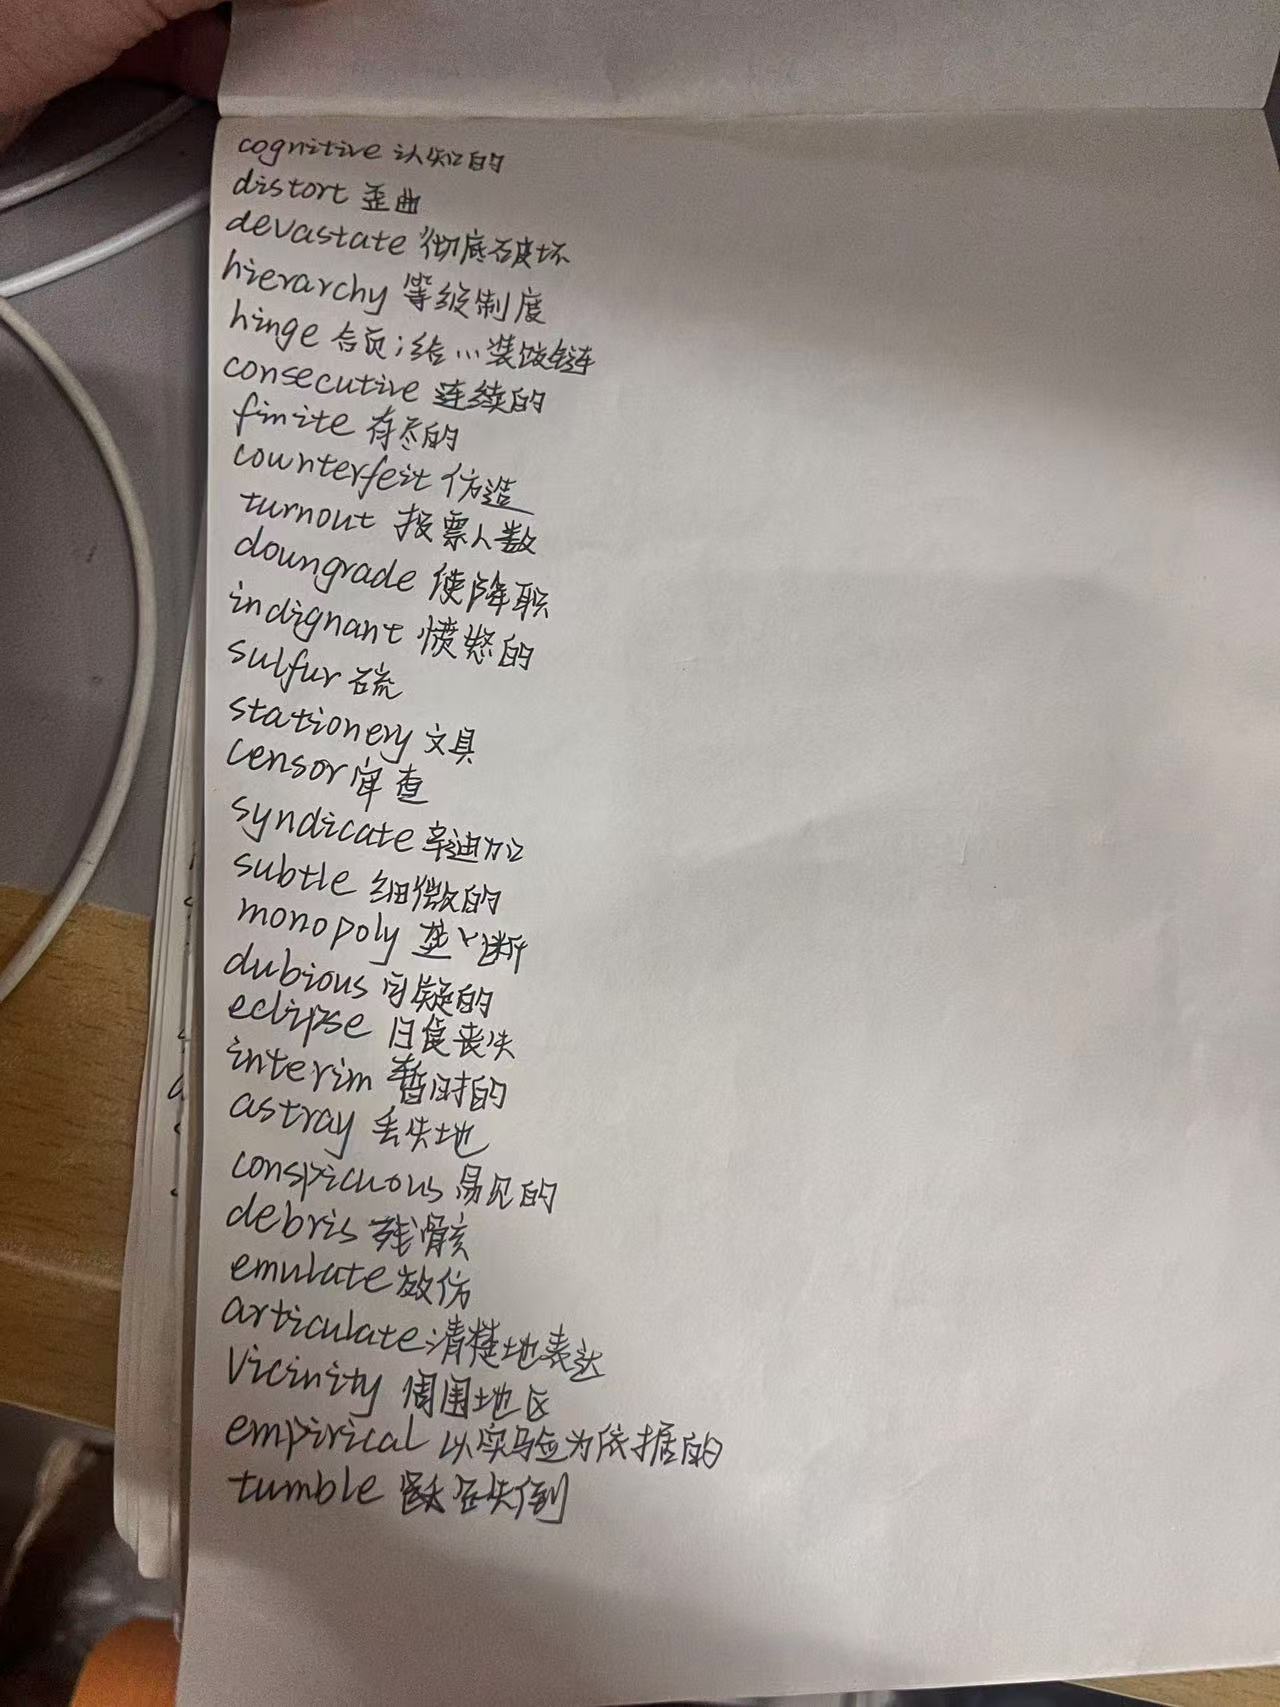 cognitive 认知的
distort 歪曲
devastate 彻底破坏
hierarchy 等级制度
hinge 合页；给…装饺链
consecutive 连续的
finite 有尽的
counterfeit 仿造
turnout 投票人数
downgrade 使降职
indignant 愤怒的
sulfur 硫
stationery 文具
censor 审查
syndicate 辛迪加
subtle 细微的
monopoly 垄断
dubious 可疑的
eclipse 日食丧失
interim 暂时的
astray 丢失地
conspicuous 易见的
debris 残骸
emulate 效仿
articulate 清楚地表达
vicinity 周围地区
empirical 以实验为依据的
tumble 跌倒